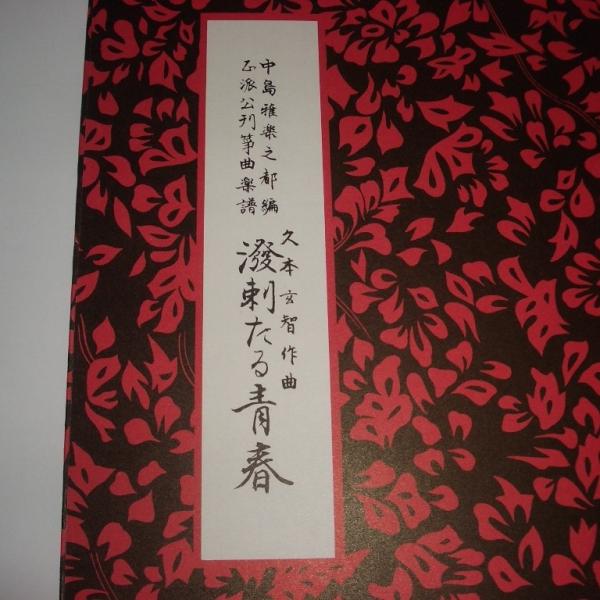 中島雅楽之都編
正派公刊箏曲楽譜
久本玄智作曲
潑剌たる青春